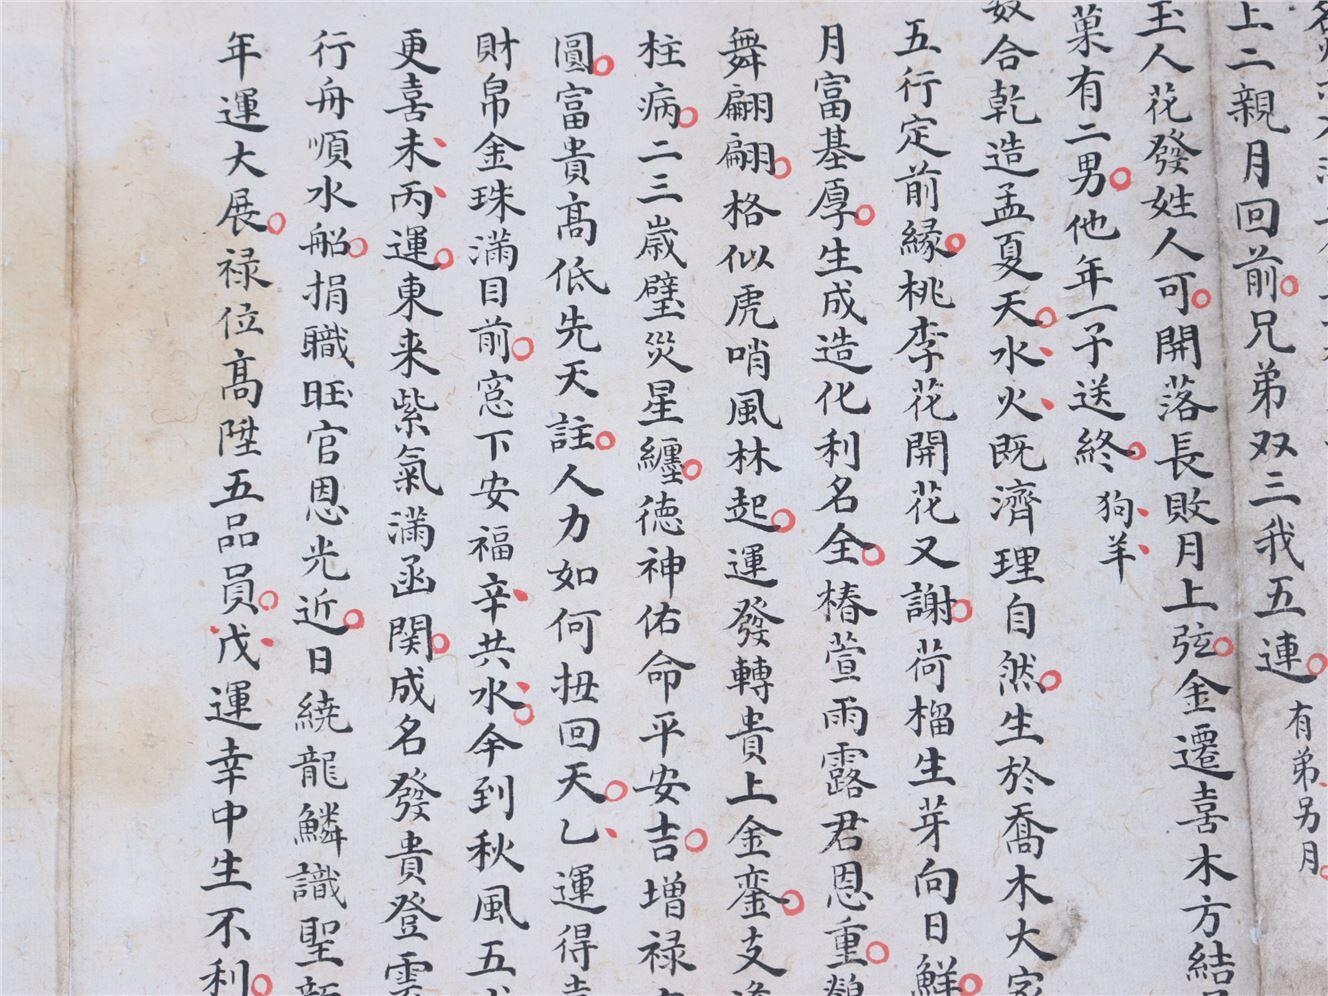 上二親月回前兄弟双三我五連
有弟另月
玉人花發姓人可開落長敗月上弦金遷喜木方結
菓有二男他年一子送終
狗羊
合乾造孟夏天水火既濟理自然生於喬木大家
五行定前緣桃李花開花又謝荷榴生芽向日鮮
月富基厚生成造化利名全椿萱雨露君恩重
舞翩翩格似虎哨風林起運發轉貴上金鑾支
柱病二三歲壁災星纏德神佑命平安吉增禄
圓富貴高低先天註人力如何扭回天乙運得
財帛金珠滿目前窓下安福辛共水今到秋風五
更喜未丙運東来紫氣滿函関成名發貴登雲
行舟順水船捐職旺官恩光近日繞龍鱗識聖
年運大展禄位高陞五品員戊運幸中生不利